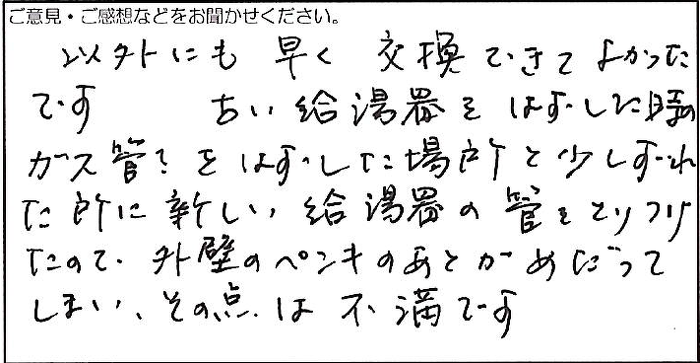 ご意見・ご感想などをお聞かせください。
以外にも 早く 交換できてよかった
です 古い給湯器をはずした時の
ガス管?をはずした場所と少しずれ
た所に新しい給湯器の管をとりつけ
たので、外壁のペンキのあとがめだって
しまい、その点は不満です